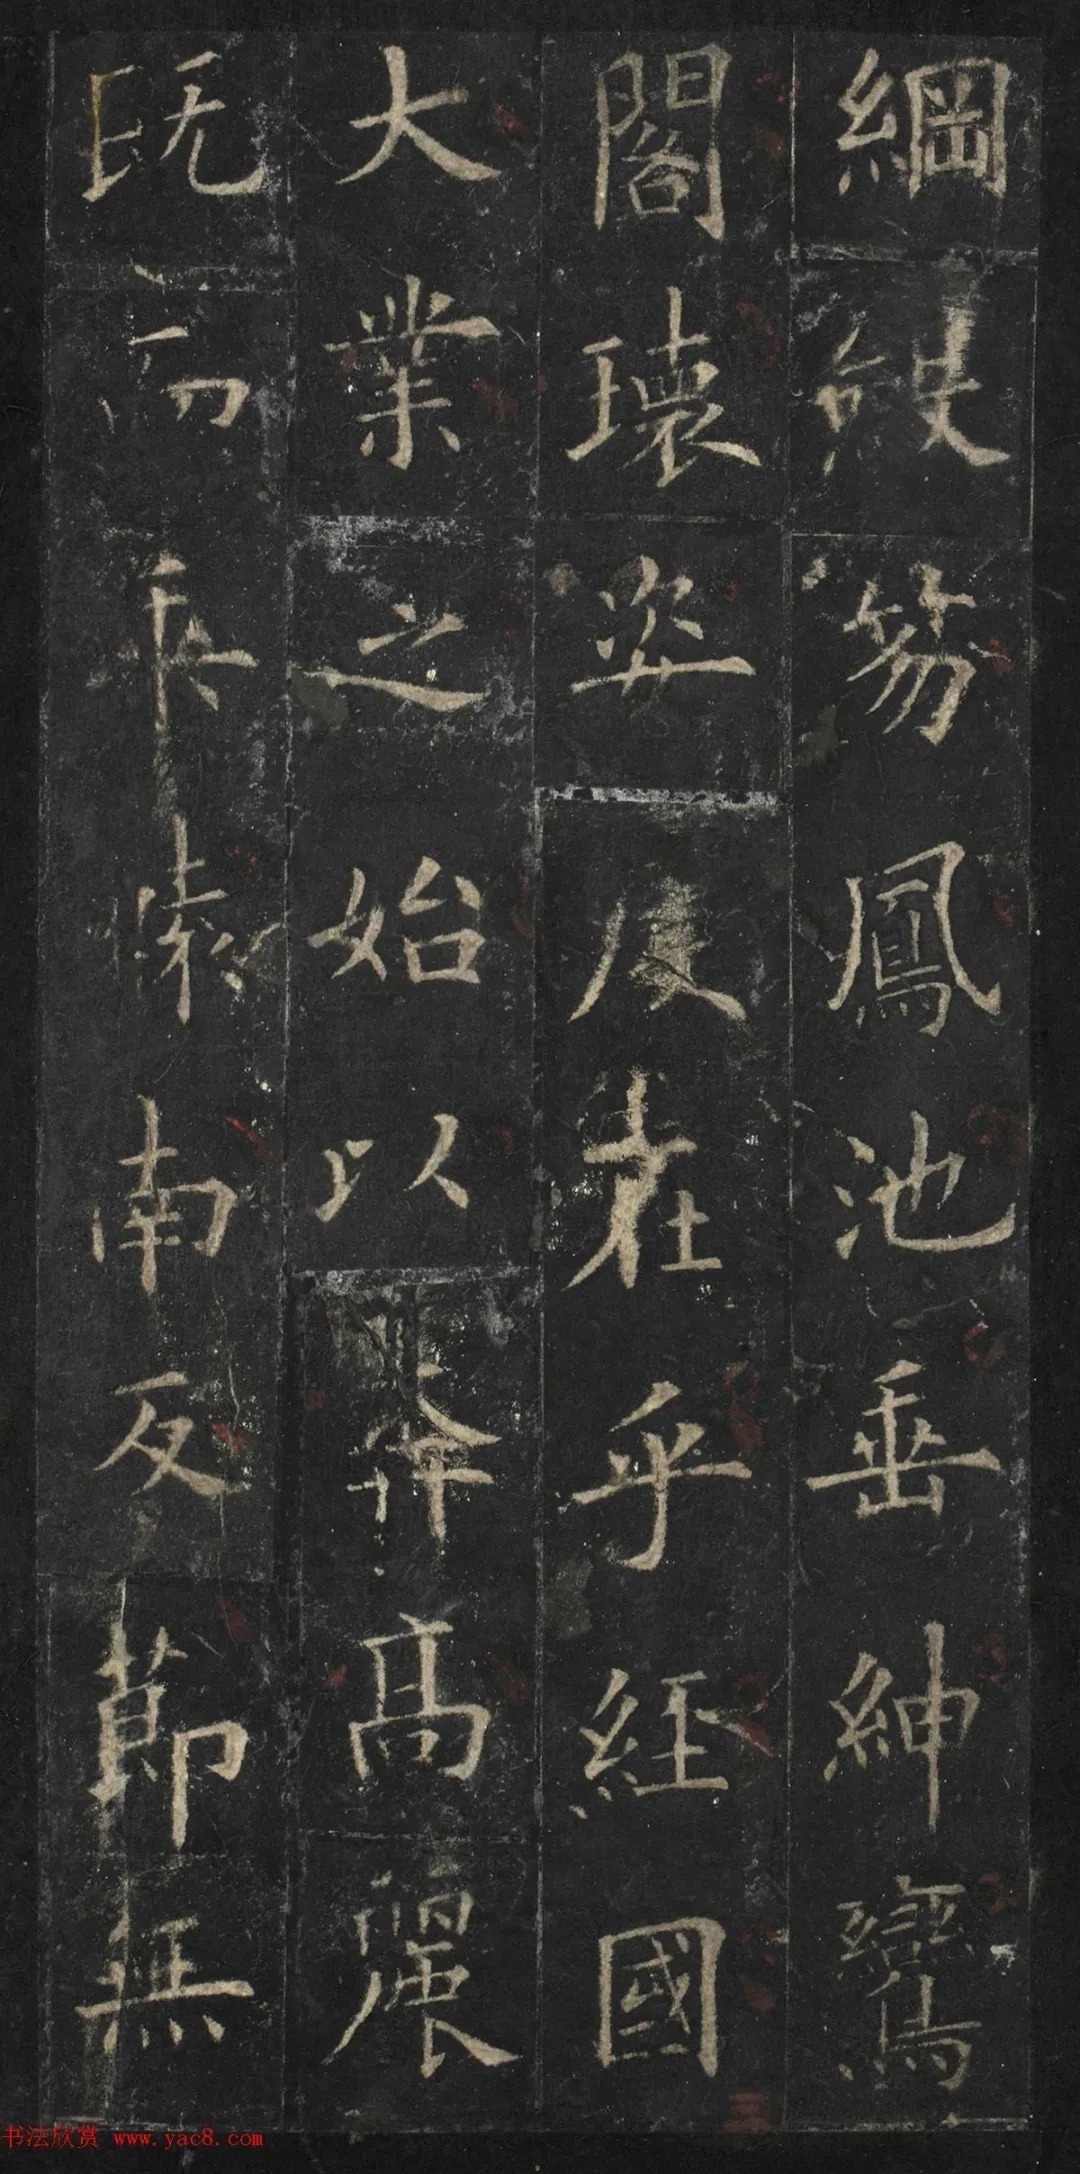 綱紱笏鳳池垂紳鸞
閣瓌姿度在乎經國
大業之始以高麗
既南反節無
书法欣赏 www.yac8.com